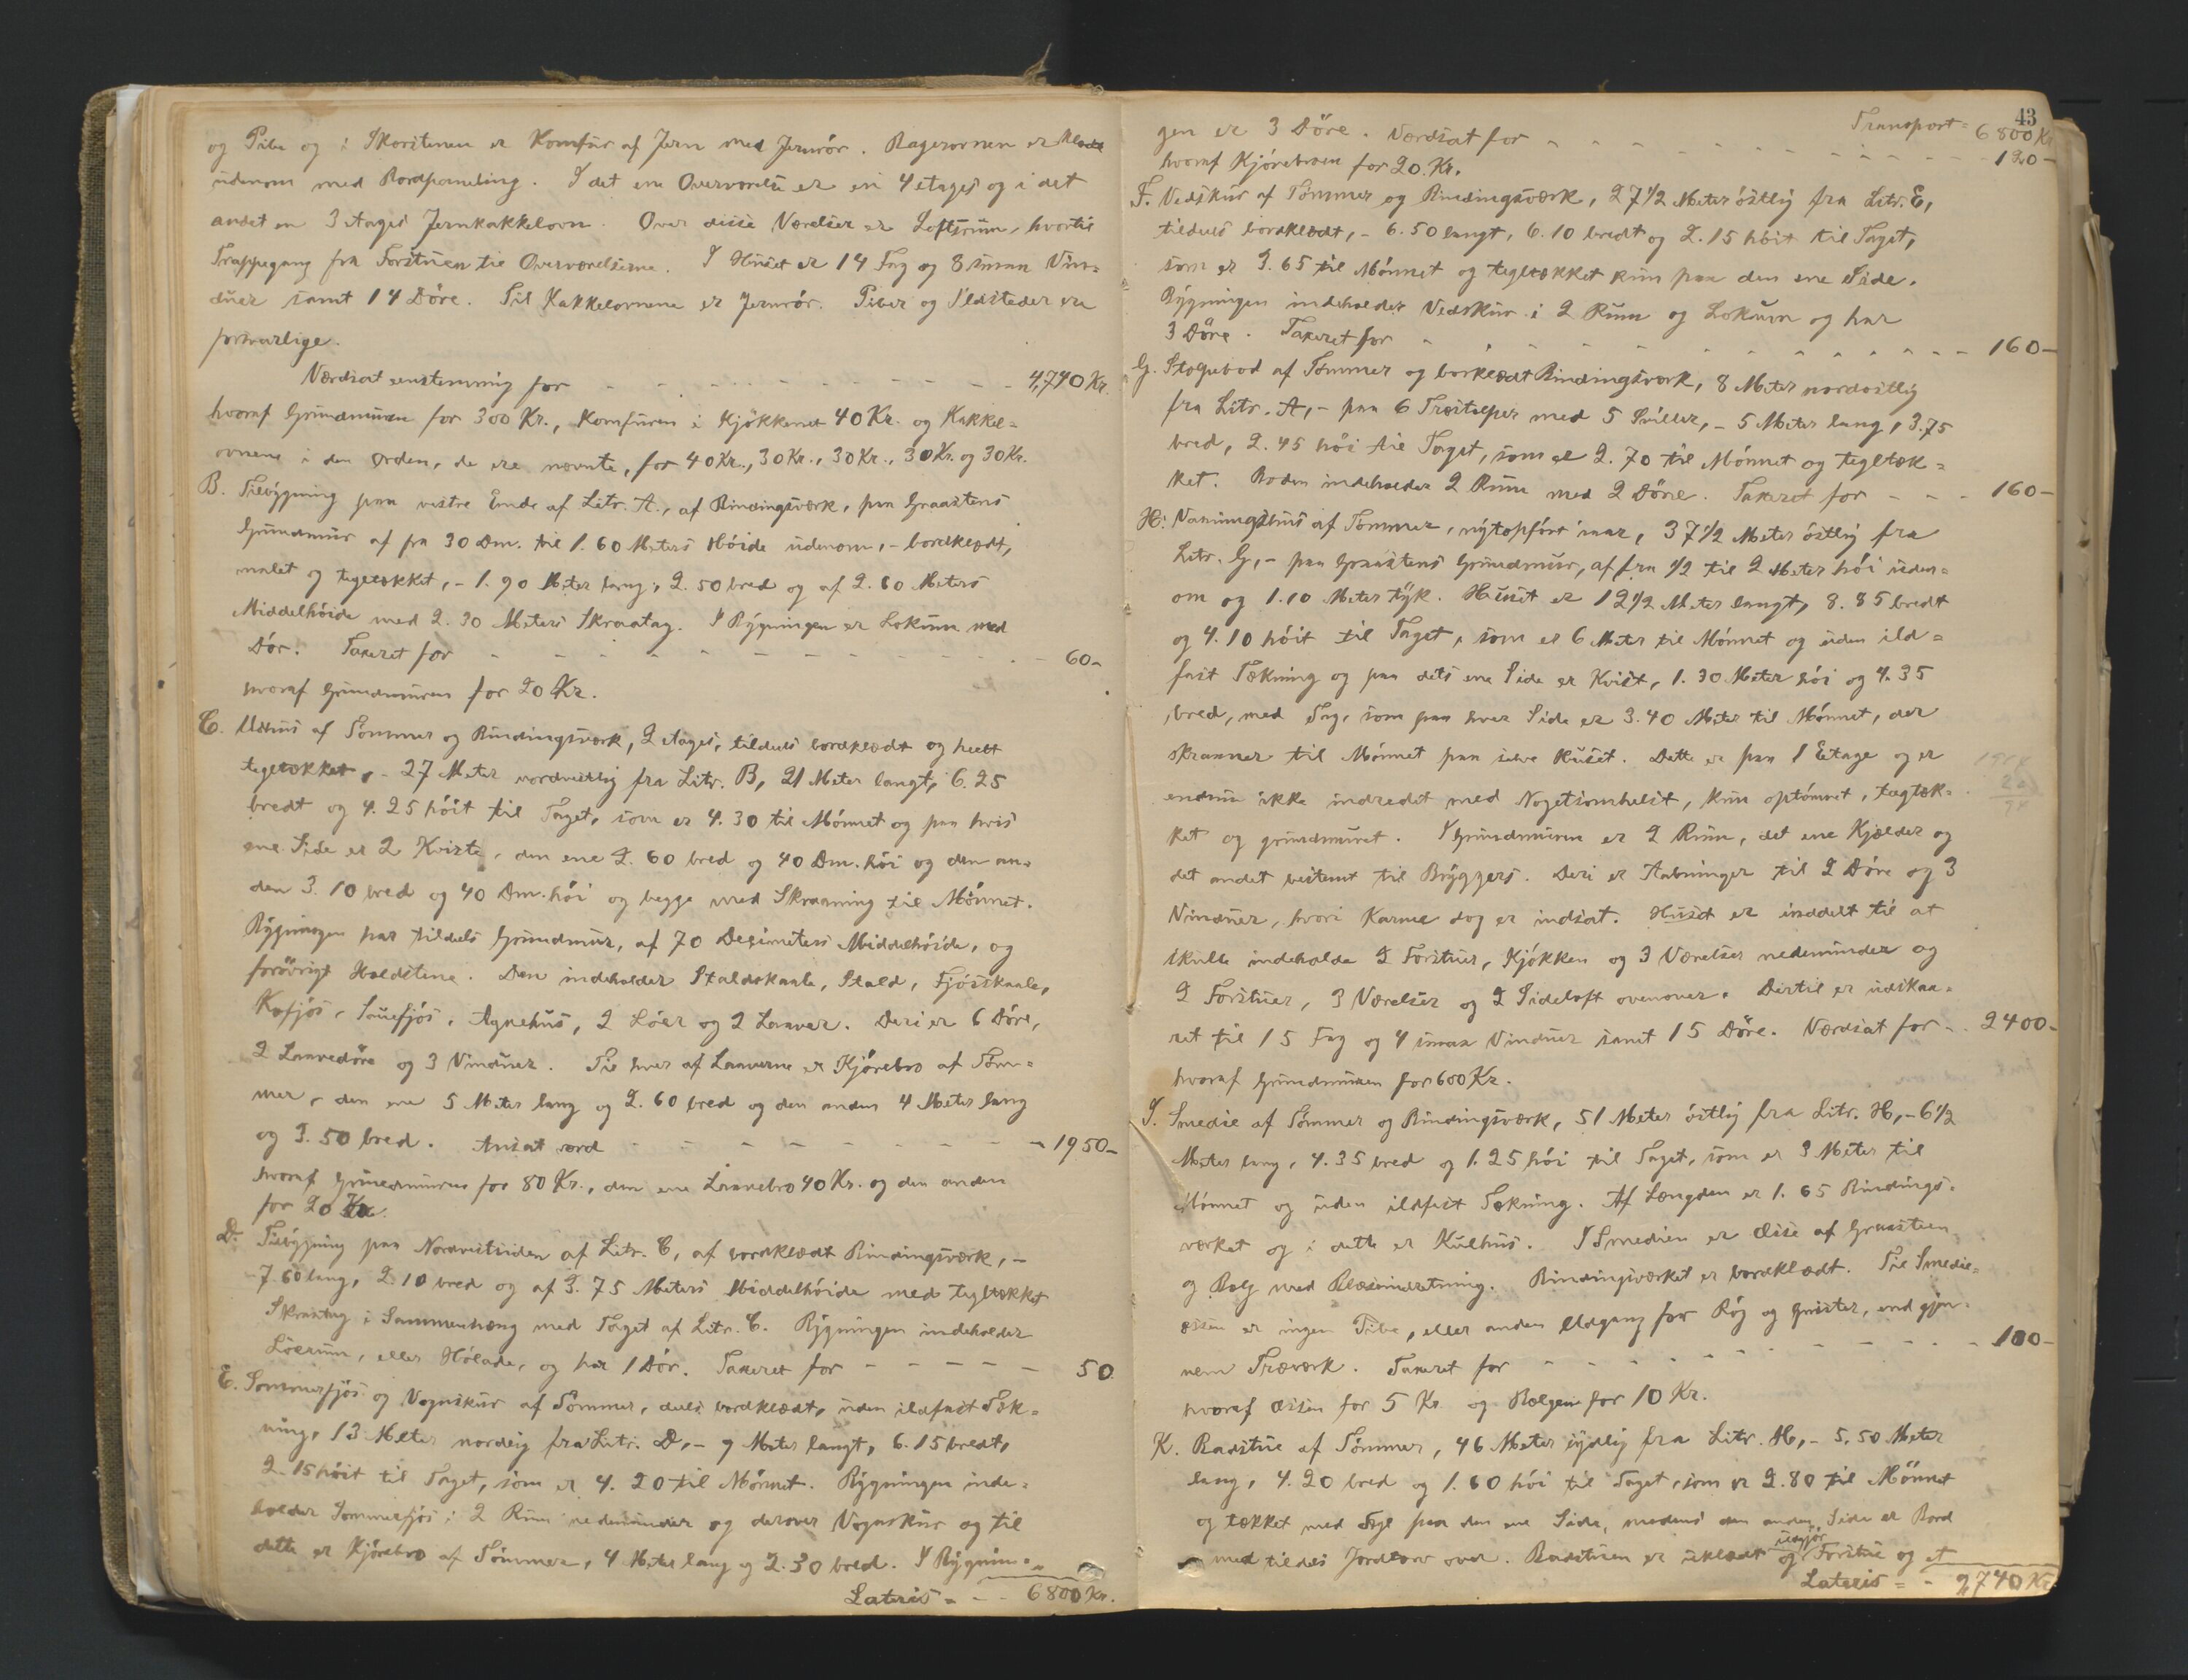 og Pibe og i Skorstenen er Komfur af Jern med Jernrör. Bagerovnen er klædt
udenom med Bordpaneling. I det ene Overværelse er en 4 etages og i det
andet en 3 etages Jernkakkelovn. Over disse Værelser er Loftsrum, hvortil
Trappegang fra Forstuen til Overværelserne. I Huset er 14 Fag og 8 smaa Vin=
duer samt 14 Döre. Til Kakkelovnene er Jernrör. Piber og Ildsteder ere
forsvarlige.
Værdsat eenstemmig for - - - - - - - - - - 4,740 Kr.
hvoraf Grundmuren for 300 Kr., Komfuren i Kjökkenet 40 Kr. og Kakkel=
ovnene i den Orden, de ere nævnte, for 40 Kr., 30 Kr., 30 Kr., 30 Kr. og 30 Kr.
B. Tilbygning paa vestre Ende af Litr. A., af Bindingsværk, paa Graastens
Grundmur af fra 30 Dm. til 1.60 Meters Höide udenom, - bordklædt,
malet og tegltækket, - 1.90 Meter lang, 2.50 bred og af 2.60 Meters
Middelhöide med 2.30 Meters Skraatag. I Bygningen er Lokum med
Dör. Taxeret for - - - - - - - - - - - - 60 -
hvoraf Grundmuren for 20 Kr.
C. Udhus af Tömmer og Bindingsværk, 2 etages, tildels bordklædt og heelt
tegltækket, - 27 Meter nordvestlig fra Litr. B, 21 Meter langt, 6.25
bredt og 4.25 höit til Taget, som er 4.30 til Mönnet og paa hvis
ene Side er 2 Kviste, den ene 2.60 bred og 40 Dm. höi og den an=
den 3.10 bred og 40 Dm. höi og begge med Skraaning til Mönnet.
Bygningen har tildels Grundmur, af 70 Desimeters Middelhöide, og
forövrigt Holdstene. Den indeholder Staldskaale, Stald, Fjösskaale,
Kofjös, Sauefjös, Agnehus, 2 Löer og 2 Laaver. Deri er 6 Döre,
2 Laavedöre og 3 Vinduer. Til hver af Laaverne er Kjörebro af Töm=
mer, den ene 5 Meter lang og 2.60 bred og den anden 4 Meter lang
og 3.50 bred. Ansat værd - - - - - - - - - 1950 -
hvoraf Grundmuren for 80 Kr., den ene Laavebro 40 Kr. og den anden
for 20 Kr.
D. Tilbygning paa Nordvestsiden af Litr. C, af bordklædt Bindingsværk, -
7.60 lang, 2.10 bred og af 3.75 Meters Middelhöide med tegltækket
Skraatag i Sammenhæng med Taget af Litr. C. Bygningen indeholder
Löerum, eller Hölade, og har 1 Dör. Taxeret for - - - - - 50
E. Sommerfjös og Vognskur af Tömmer, dels bordklædt, uden ildfast Tæk=
ning, 13 Meter nordlig fra Litr. D, - 9 Meter langt, 6.15 bredt,
2.15 höit til Taget, som er 4.20 til Mönnet. Bygningen inde=
holder Sommerfjös i 2 Rum nedenunder og derover Vognskur og til
dette er Kjörebro af Tömmer, 4 Meter lang og 2.30 bred. I Bygnin=
Lateris = - - 6800 Kr.
43
Transport = 6800 Kr
gen er 3 Döre. Værdsat for - - - - - - - - - - - 120 -
hvoraf Kjörebroen for 20 Kr.
F. Vedskur af Tömmer og Bindingsværk, 27 1/2 Meter östlig fra Litr. E,
tildels bordklædt, - 6.50 langt, 6.10 bredt og 2.15 höit til Taget,
som er 3.65 til Mönnet og tegltækket kun paa den ene Side.
Bygningen indeholder Vedskur i 2 Rum og Lokum og har
3 Döre. Taxeret for - - - - - - - - - - - 160 -
G. Stogubod af Tömmer og bordklædt Bindingsværk, 8 Meter nordostlig
fra Litr. A, - paa 6 Træstolper med 5 Sviller, - 5 Meter lang, 3.75
bred, 2.45 höi til Taget, som er 2.70 til Mönnet og tegltæk=
ket. Boden indeholder 2 Rum med 2 Döre. Taxeret for - - - 160 -
H. Vaaningshus af Tömmer, nytopfört iaar, 37 1/2 Meter östlig fra
Litr. G, - paa Graastens Grundmur, af fra 1/2 til 2 Meter höi uden=
om og 1.10 Meter tyk. Huset er 12 1/2 Meter langt, 8.85 bredt
og 4.10 höit til Taget, som er 6 Meter til Mönnet og uden ild=
fast Tækning og paa dets ene Side er Kvist, 1.30 Meter höi og 4.35
bred, med Tag, som paa hver Side er 3.40 Meter til Mönnet, der
skraaner til Mönnet paa selve Huset. Dette er paa 1 Etage og er
endnu ikke indredet med Nogetsomhelst, kun optömret, tagtæk=
ket og grundmuret. I Grundmuren er 2 Rum, det ene Kjælder og
det andet bestemt til Bryggers. Deri er Aabninger til 2 Döre og 3
Vinduer, hvori Karme dog er indsat. Huset er inddelt til at
skulle indeholde 2 Forstuer, Kjökken og 3 Værelser nedenunder og
2 Forstuer, 3 Værelser og 2 Sideloft ovenover. Dertil er udskaa=
ret til 15 Fag og 4 smaa Vinduer samt 15 Döre. Værdsat for - 2400 -
hvoraf Grundmuren for 600 Kr.
I. Smedie af Tömmer og Bindingsværk, 51 Meter östlig fra Litr. H, - 6 1/2
Meter lang, 4.35 bred og 1.25 höi til Taget, som er 3 Meter til
Mönnet og uden ildfast Tækning. Af Længden er 1.65 Bindings=
værket og i dette er Kulhus. I Smedien er Æsse af Graasteen
og Bælg med Blæseindretning. Bindingsværket er bordklædt. Til Smedie=
æssen er ingen Pibe, eller anden Udgang for Røg og Gnister, end gjen=
nem Træværk. Taxeret for - - - - - - - - - 100 -
hvoraf Æssen for 5 Kr. og Bælgen for 10 Kr.
K. Badstue af Tömmer, 46 Meter sydlig fra Litr. H, - 5.50 Meter
lang, 4.20 bred og 1.60 höi til Taget, som er 2.80 til Mönnet
og tækket med Tegl paa den ene Side, medens den anden Side er Bord
med tildels Jordtorv over. Badstuen er uklædt og udgjör Forstue og et
Lateris = - 9,740 Kr